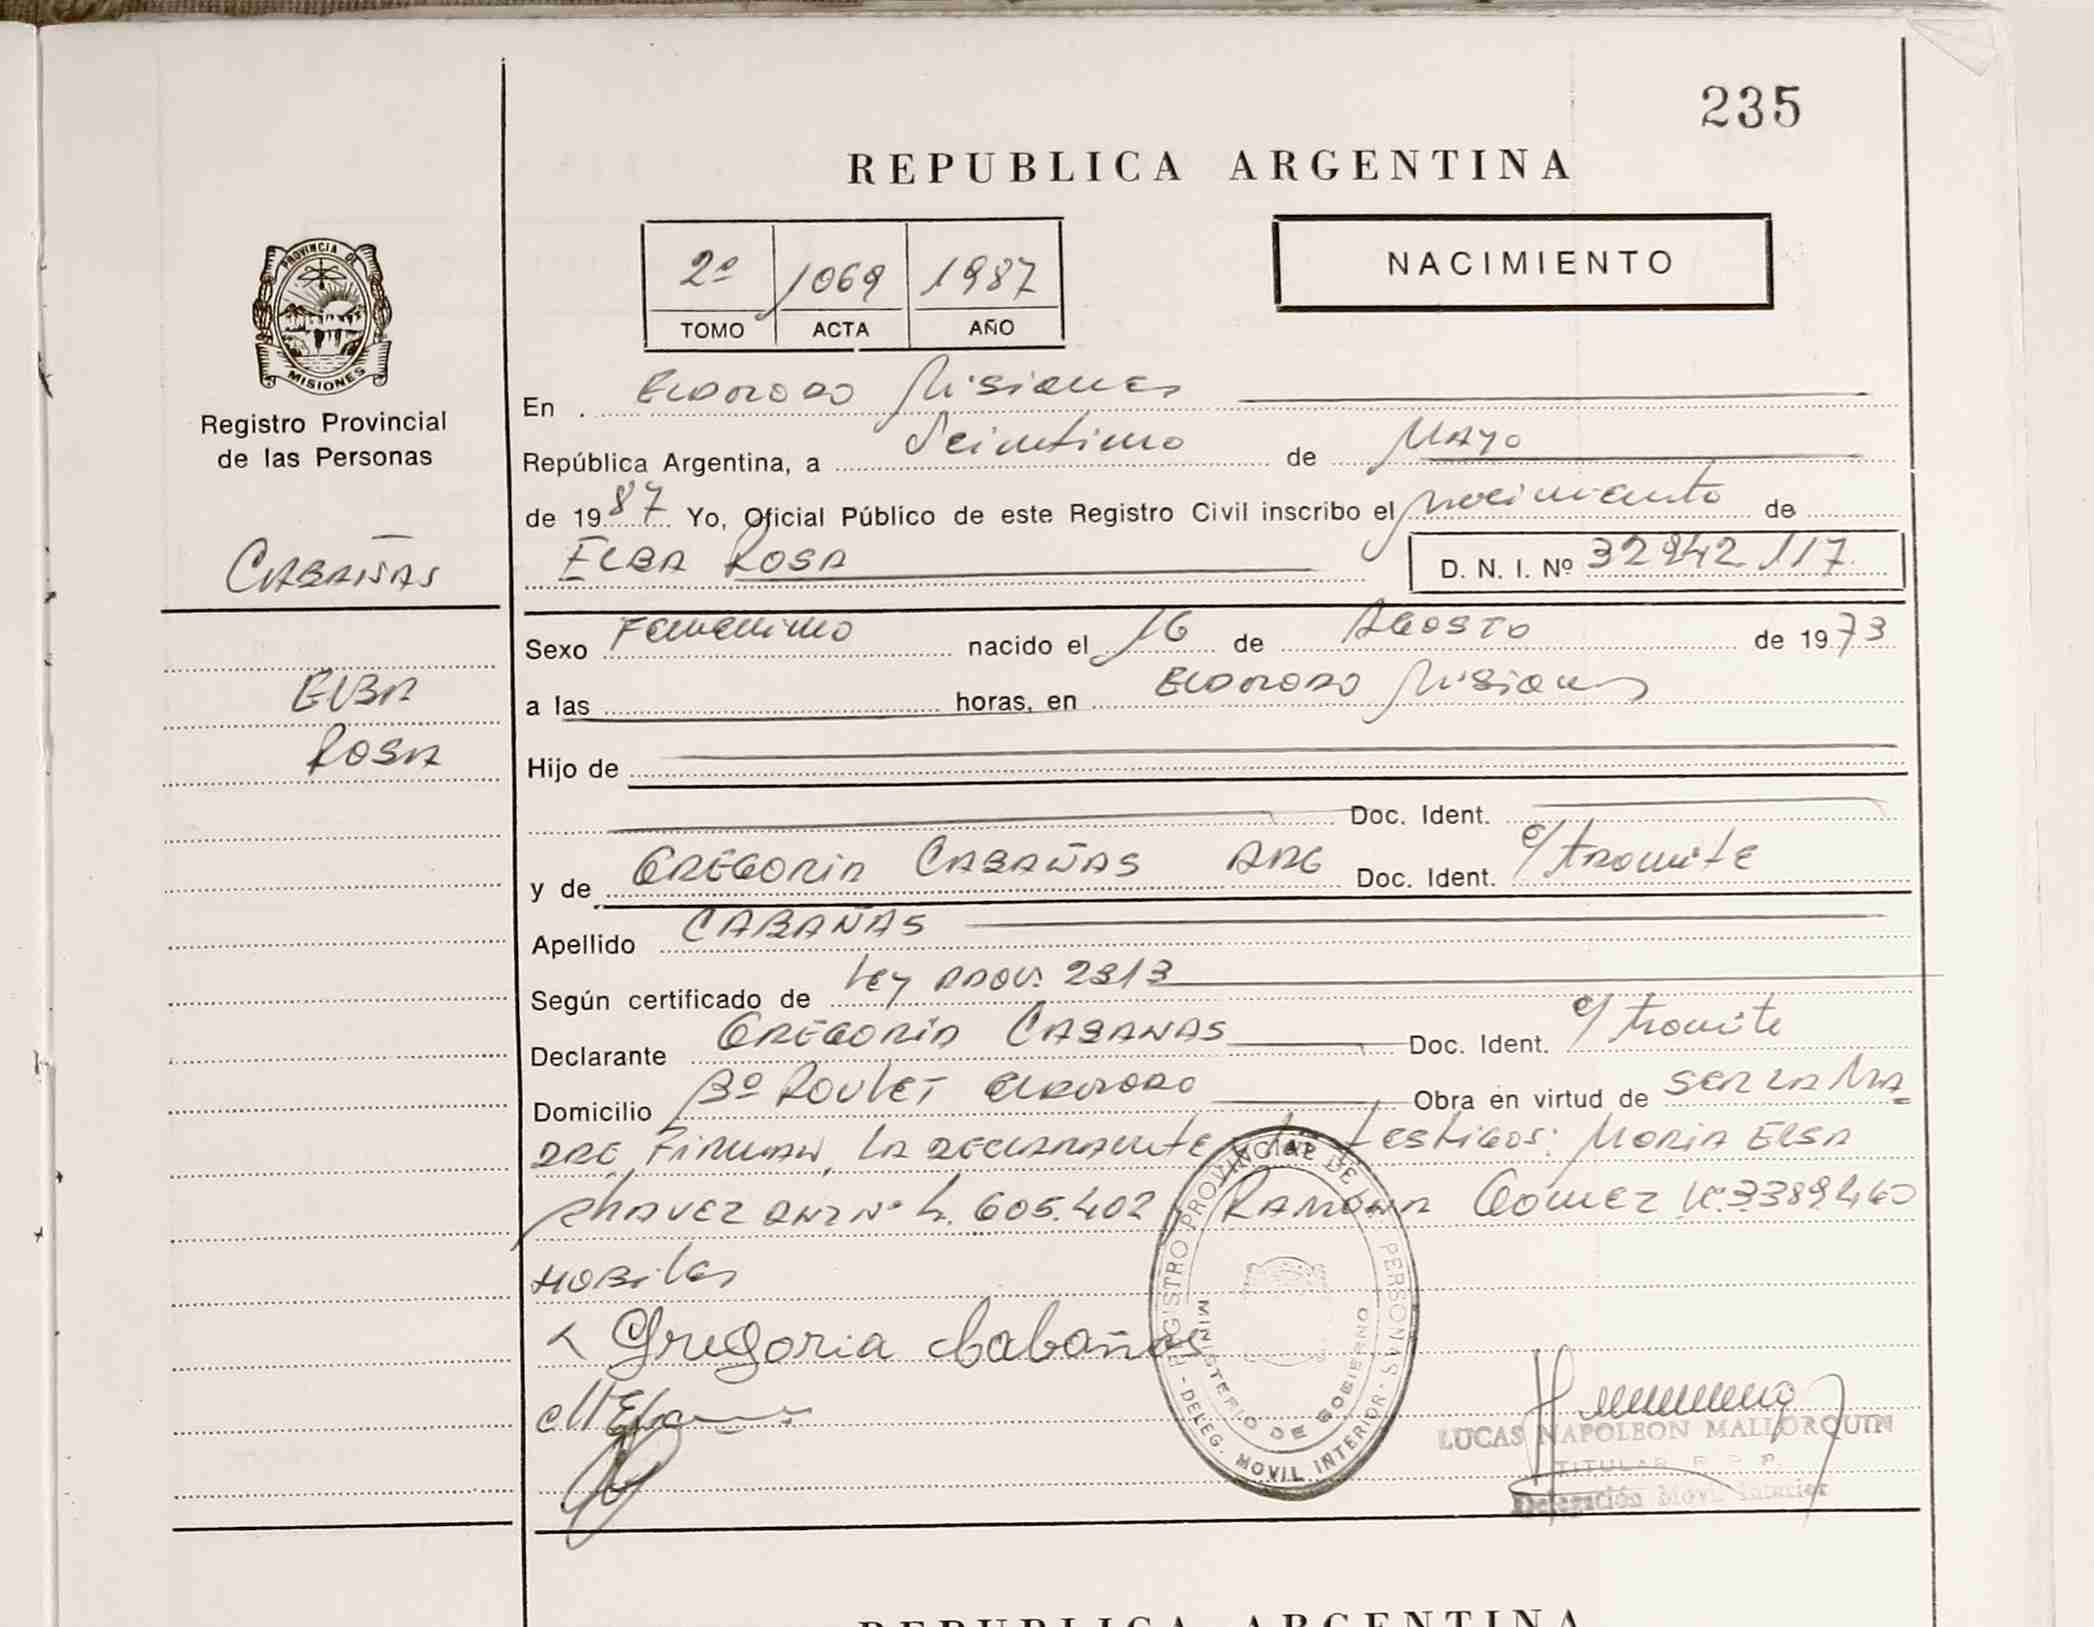 235
REPUBLICA ARGENTINA
2º 1069 1987
TOMO ACTA AÑO
NACIMIENTO
PROVINCIA DE
MISIONES
Registro Provincial
de las Personas
CABAÑAS
ELBA
ROSA
En ELDORADO Misiones
República Argentina, a de MAYO
de 1987 Yo, Oficial Público de este Registro Civil inscribo el nacimiento de
ELBA ROSA D. N. I. Nº 32942117
Sexo Femenino nacido el 16 de AGOSTO de 1973
a las horas, en ELDORADO Misiones
Hijo de
Doc. Ident.
y de GREGORIA CABAÑAS ARG Doc. Ident. e/tramite
Apellido CABAÑAS
Según certificado de Ley 2313
Declarante GREGORIA CABAÑAS Doc. Ident. e/tramite
Domicilio Bº ROULET ELDORADO Obra en virtud de SER LA MA
DRE, FIRMAN, LA DECLARANTE testigos: MARIA ELSA
CHAVEZ DNI Nº 4.605.402 y RAMONA GOMEZ Nº 3389460
HABILES
Gregoria Cabañas
REGISTRO PROVINCIAL DE LAS PERSONAS - DELEG. MOVIL INTERIOR -
MINISTERIO DE GOBIERNO
LUCAS NAPOLEON MALLORQUIN
TITULAR R. P. P.
Delegación Movil Interior
REPUBLICA ARGENTINA